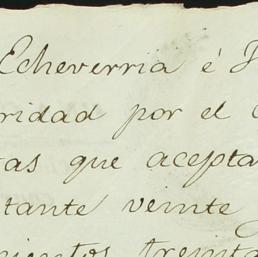 Echeverria é
ridad por el
tas que acepta
tante veinte
mientos treinta